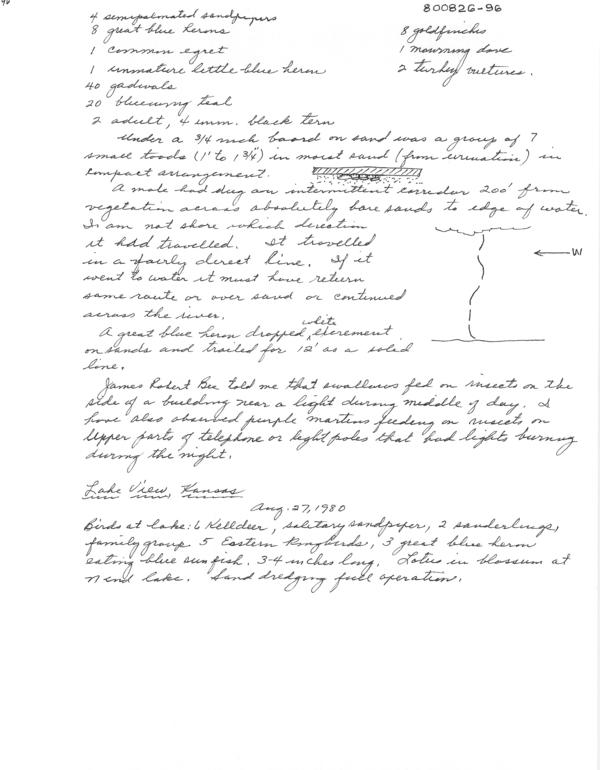 96
800826-96
4 semipalmated sandpipers
8 great blue herons
1 common egret
1 immature little blue heron
40 gadwals
20 bluewing teal
2 adult, 4 imm. black tern
8 goldfinches
1 mourning dove
2 turkey vultures.
Under a 3/4 inch board on sand was a group of 7
small toads (1" to 1 3/4") in moist sand (from urination) in
compact arrangement.
A mole had dug an intermittent corridor 200' from
vegetation across absolutely bare sands to edge of water.
I am not shore which direction
it had travelled. It travelled
in a fairly direct line. If it
went to water it must have return
same route or over sand or continued
across the river.
W
A great blue heron dropped white excrement
on sands and trailed for 12' as a solid
line.
James Robert Bee told me that swallows fed on insects on the
side of a building near a light during middle of day. I
have also observed purple martins feeding on insects on
upper parts of telephone or light poles that had lights burning
during the night.
Lake View, Kansas
Aug. 27, 1980
Birds at lake: 6 Killdeer, solitary sandpiper, 2 sanderlings,
family group 5 Eastern Kingbirds, 3 great blue heron
eating blue sunfish. 3-4 inches long. Lotus in blossum at
N end lake. Sand dredging full operation.